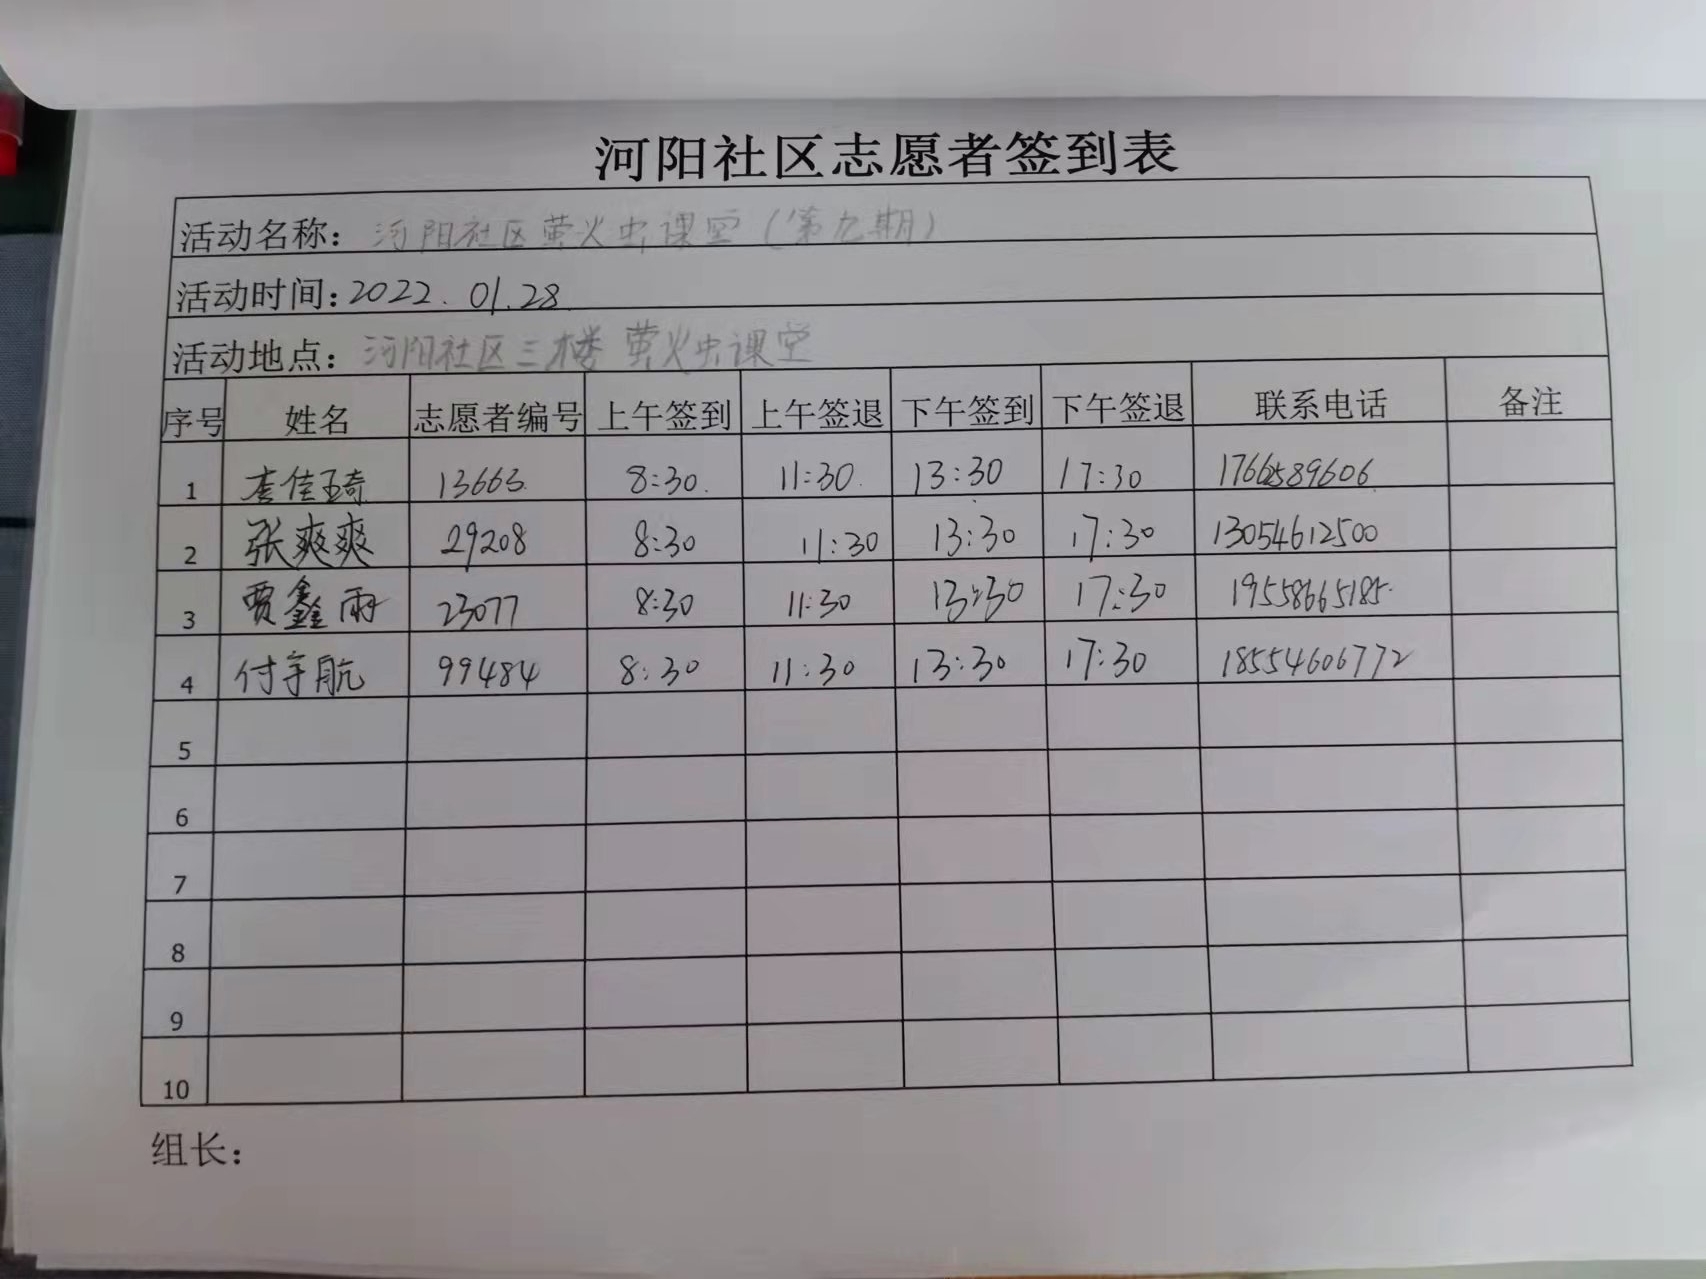 河阳社区志愿者签到表
活动名称：河阳社区萤火虫课堂（第九期）
活动时间：2022.01.28
活动地点：河阳社区三楼 萤火虫课堂
序号 姓名 志愿者编号 上午签到 上午签退 下午签到 下午签退 联系电话 备注
1 李佳琦 13663 8:30 11:30 13:30 17:30
2 张爽爽 29208 8:30 11:30 13:30 17:30 13054612500
3 贾鑫雨 23077 8:30 11:30 13:30 17:30 19558665185
4 付宇航 99484 8:30 11:30 13:30 17:30 18554606772
5
6
7
8
9
10
组长：